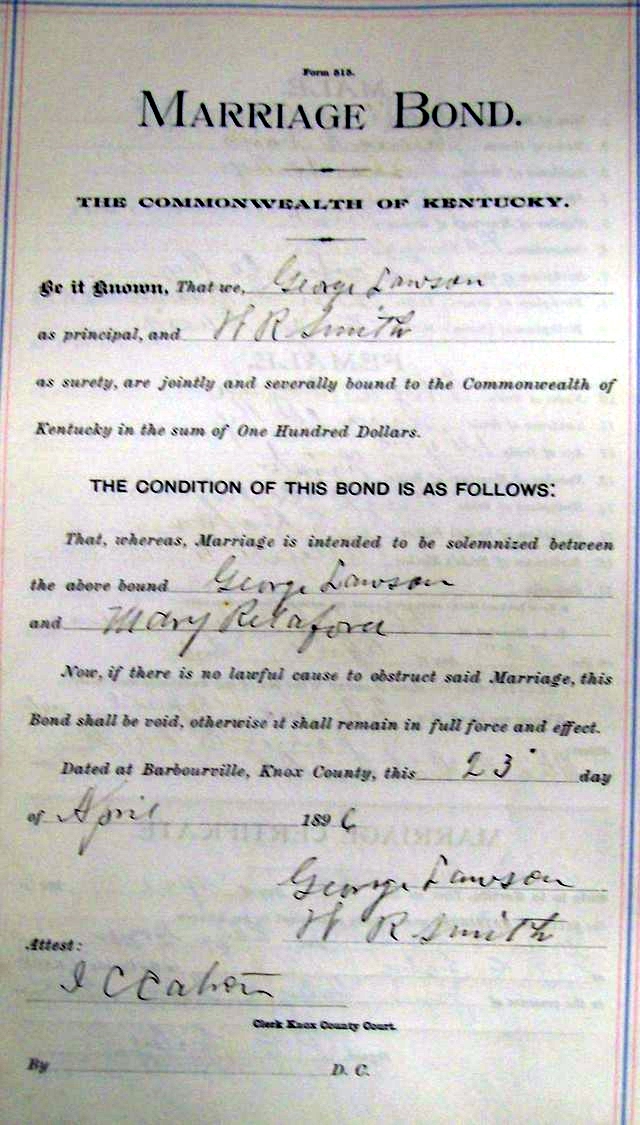 Form 515.
MARRIAGE BOND.
THE COMMONWEALTH OF KENTUCKY.
Be it Known, That we, George Lawson
as principal, and W R Smith
as surety, are jointly and severally bound to the Commonwealth of
Kentucky in the sum of One Hundred Dollars.
THE CONDITION OF THIS BOND IS AS FOLLOWS:
That, whereas, Marriage is intended to be solemnized between
the above bound George Lawson
and Mary Relaford
Now, if there is no lawful cause to obstruct said Marriage, this
Bond shall be void, otherwise it shall remain in full force and effect.
Dated at Barbourville, Knox County, this 23 day
of April 1896
George Lawson
W R Smith
Attest:
I C
Clerk Knox County Court.
By D. C.